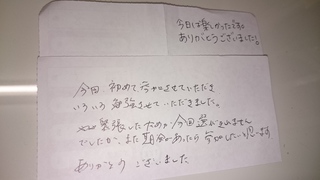 今日は楽しかったです。
ありがとうございました。
今回 初めて 参加させていただき
いろいろ 勉強させて いただきました。
緊張したためか 今回 選ばれません
でしたが、また 機会があったら 参加したいと思います
ありがとう ございました